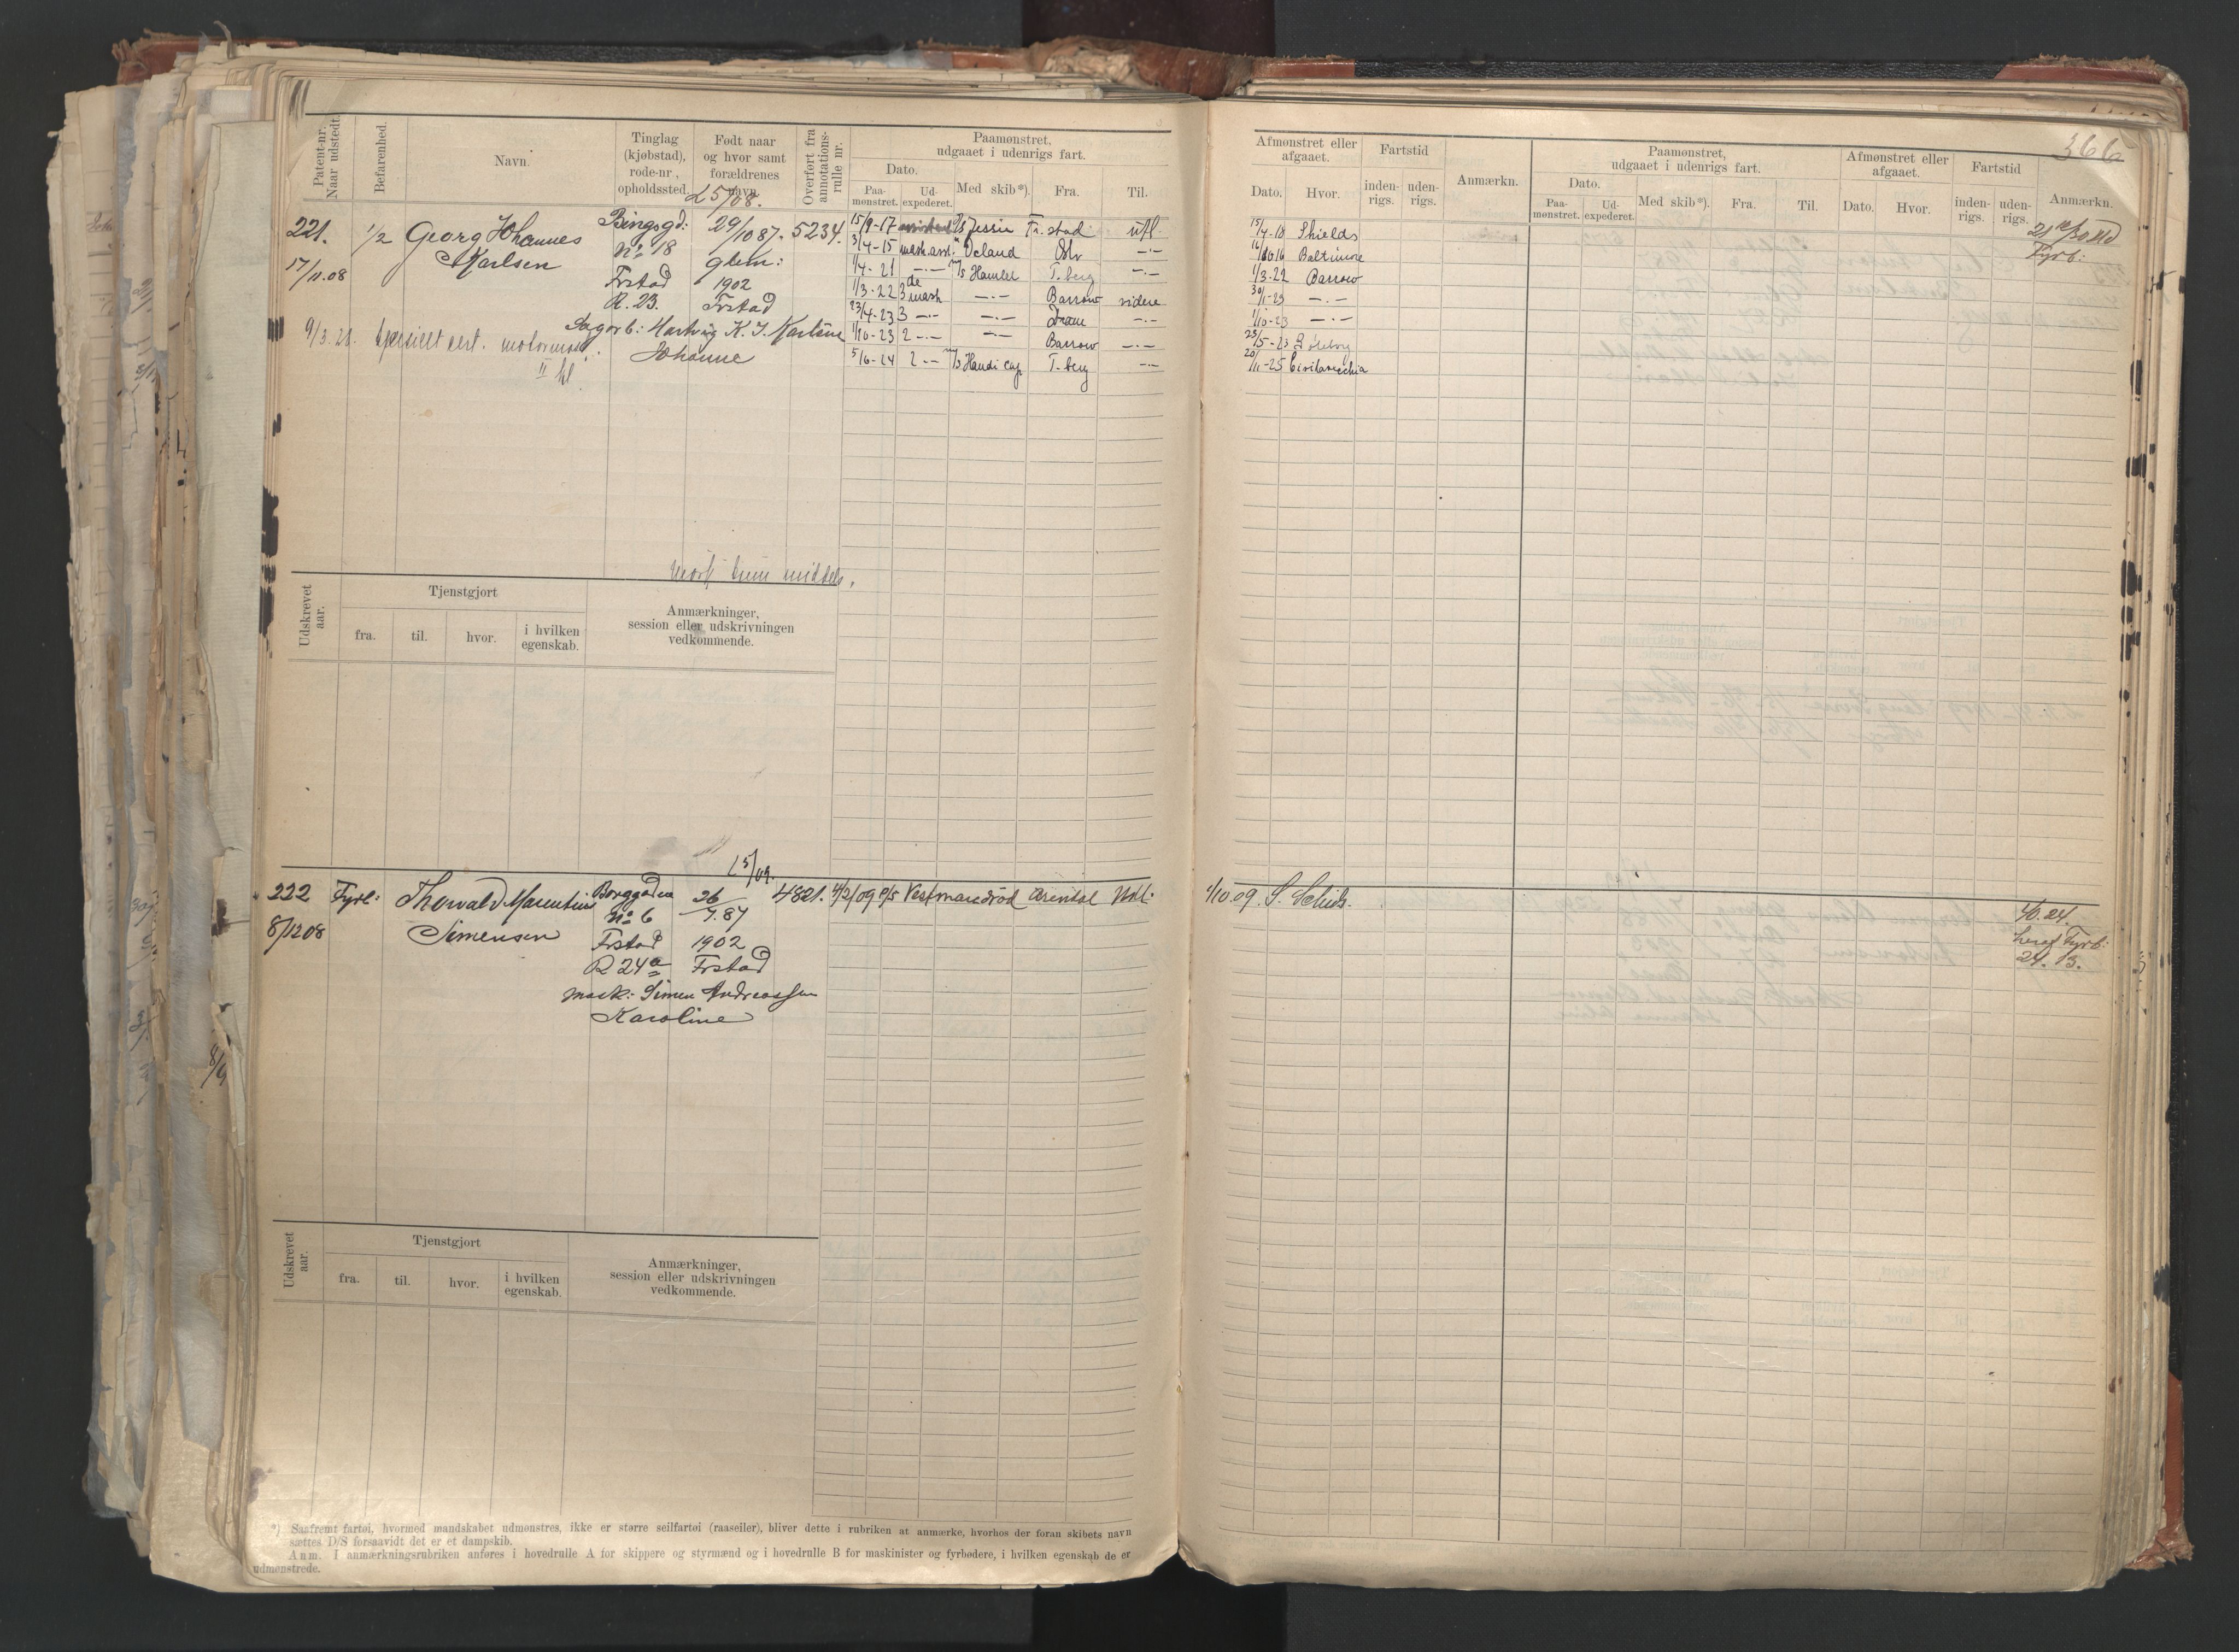 Patent-nr. Naar udstedt.
Befarenhed.
Navn.
Tinglag (kjøbstad), rode-nr., opholdssted.
Født naar og hvor samt forældrenes navn.
Overført fra annotations-rulle nr.
Paamønstret, udgaaet i udenrigs fart.
Dato.
Paa-mønstret.
Ud-expederet.
Med skib*).
Fra.
Til.
L 5/08.
221. 1/2 Georg Johannes Bingsgd: 29/10 87. 5234.
Karlsen No 18 glem:
17/11.08 Frstad 1902
R. 23. Frstad
Sagarb: Hartvig K. J. Karlsen
Johanne
9/3.21. Spesielt cert. motormask.
II kl.
15/9-17 D/S Jessie Fr.stad utl.
3/4-15 mask.asst. " Veland Oslo —"—
1/4-21 —"— M/S Hamlet T.berg —"—
1/3-22 3de mask —"— Barrow videre
23/4-23 3 —"— —"— Dram —"—
1/10-23 2 —"— —"— Barrow —"—
5/6-24 2 —"— M/S Handicap T.berg —"—
Udskrevet aar.
Tjenstgjort
fra. til. hvor. i hvilken egenskab.
Anmærkninger, session eller udskrivningen vedkommende.
L 5/09.
222 Fyrb: Thorvald Marentius Borggaden 26/7.87 4821. 4/2/09 D/S Vestmanrød Arendal Udl:
No 6
8/12 08 Simensen Frstad 1902
R 24a Frstad
mask: Simen Andreassen
Karoline
Udskrevet aar.
Tjenstgjort
fra. til. hvor. i hvilken egenskab.
Anmærkninger, session eller udskrivningen vedkommende.
*) Saafremt fartøi, hvormed mandskabet udmønstres, ikke er større seilfartøi (raaseiler), bliver dette i rubriken at anmærke, hvorhos der foran skibets navn
sættes D/S forsaavidt det er et dampskib.
Anm. I anmærkningsrubriken anføres i hovedrulle A for skippere og styrmænd og i hovedrulle B for maskinister og fyrbødere, i hvilken egenskab de er
udmønstrede.
366
Afmønstret eller afgaaet.
Dato. Hvor.
Fartstid
inden-rigs. uden-rigs.
Anmærkn.
Paamønstret, udgaaet i udenrigs fart.
Dato.
Paa-mønstret. Ud-expederet.
Med skib*). Fra. Til.
Afmønstret eller afgaaet.
Dato. Hvor.
Fartstid
inden-rigs. uden-rigs.
Anmærkn.
Fyrb:
15/4-18 Shields
16/10 16 Baltimore
1/3-22 Barrow
30/1-23 —"—
1/10-23 —"—
25/5-23 Gøteborg
20/11-25 Civitavecchia
1/10.09. S. Schids.
40.24.
heraf Fyrb:
24. 13.